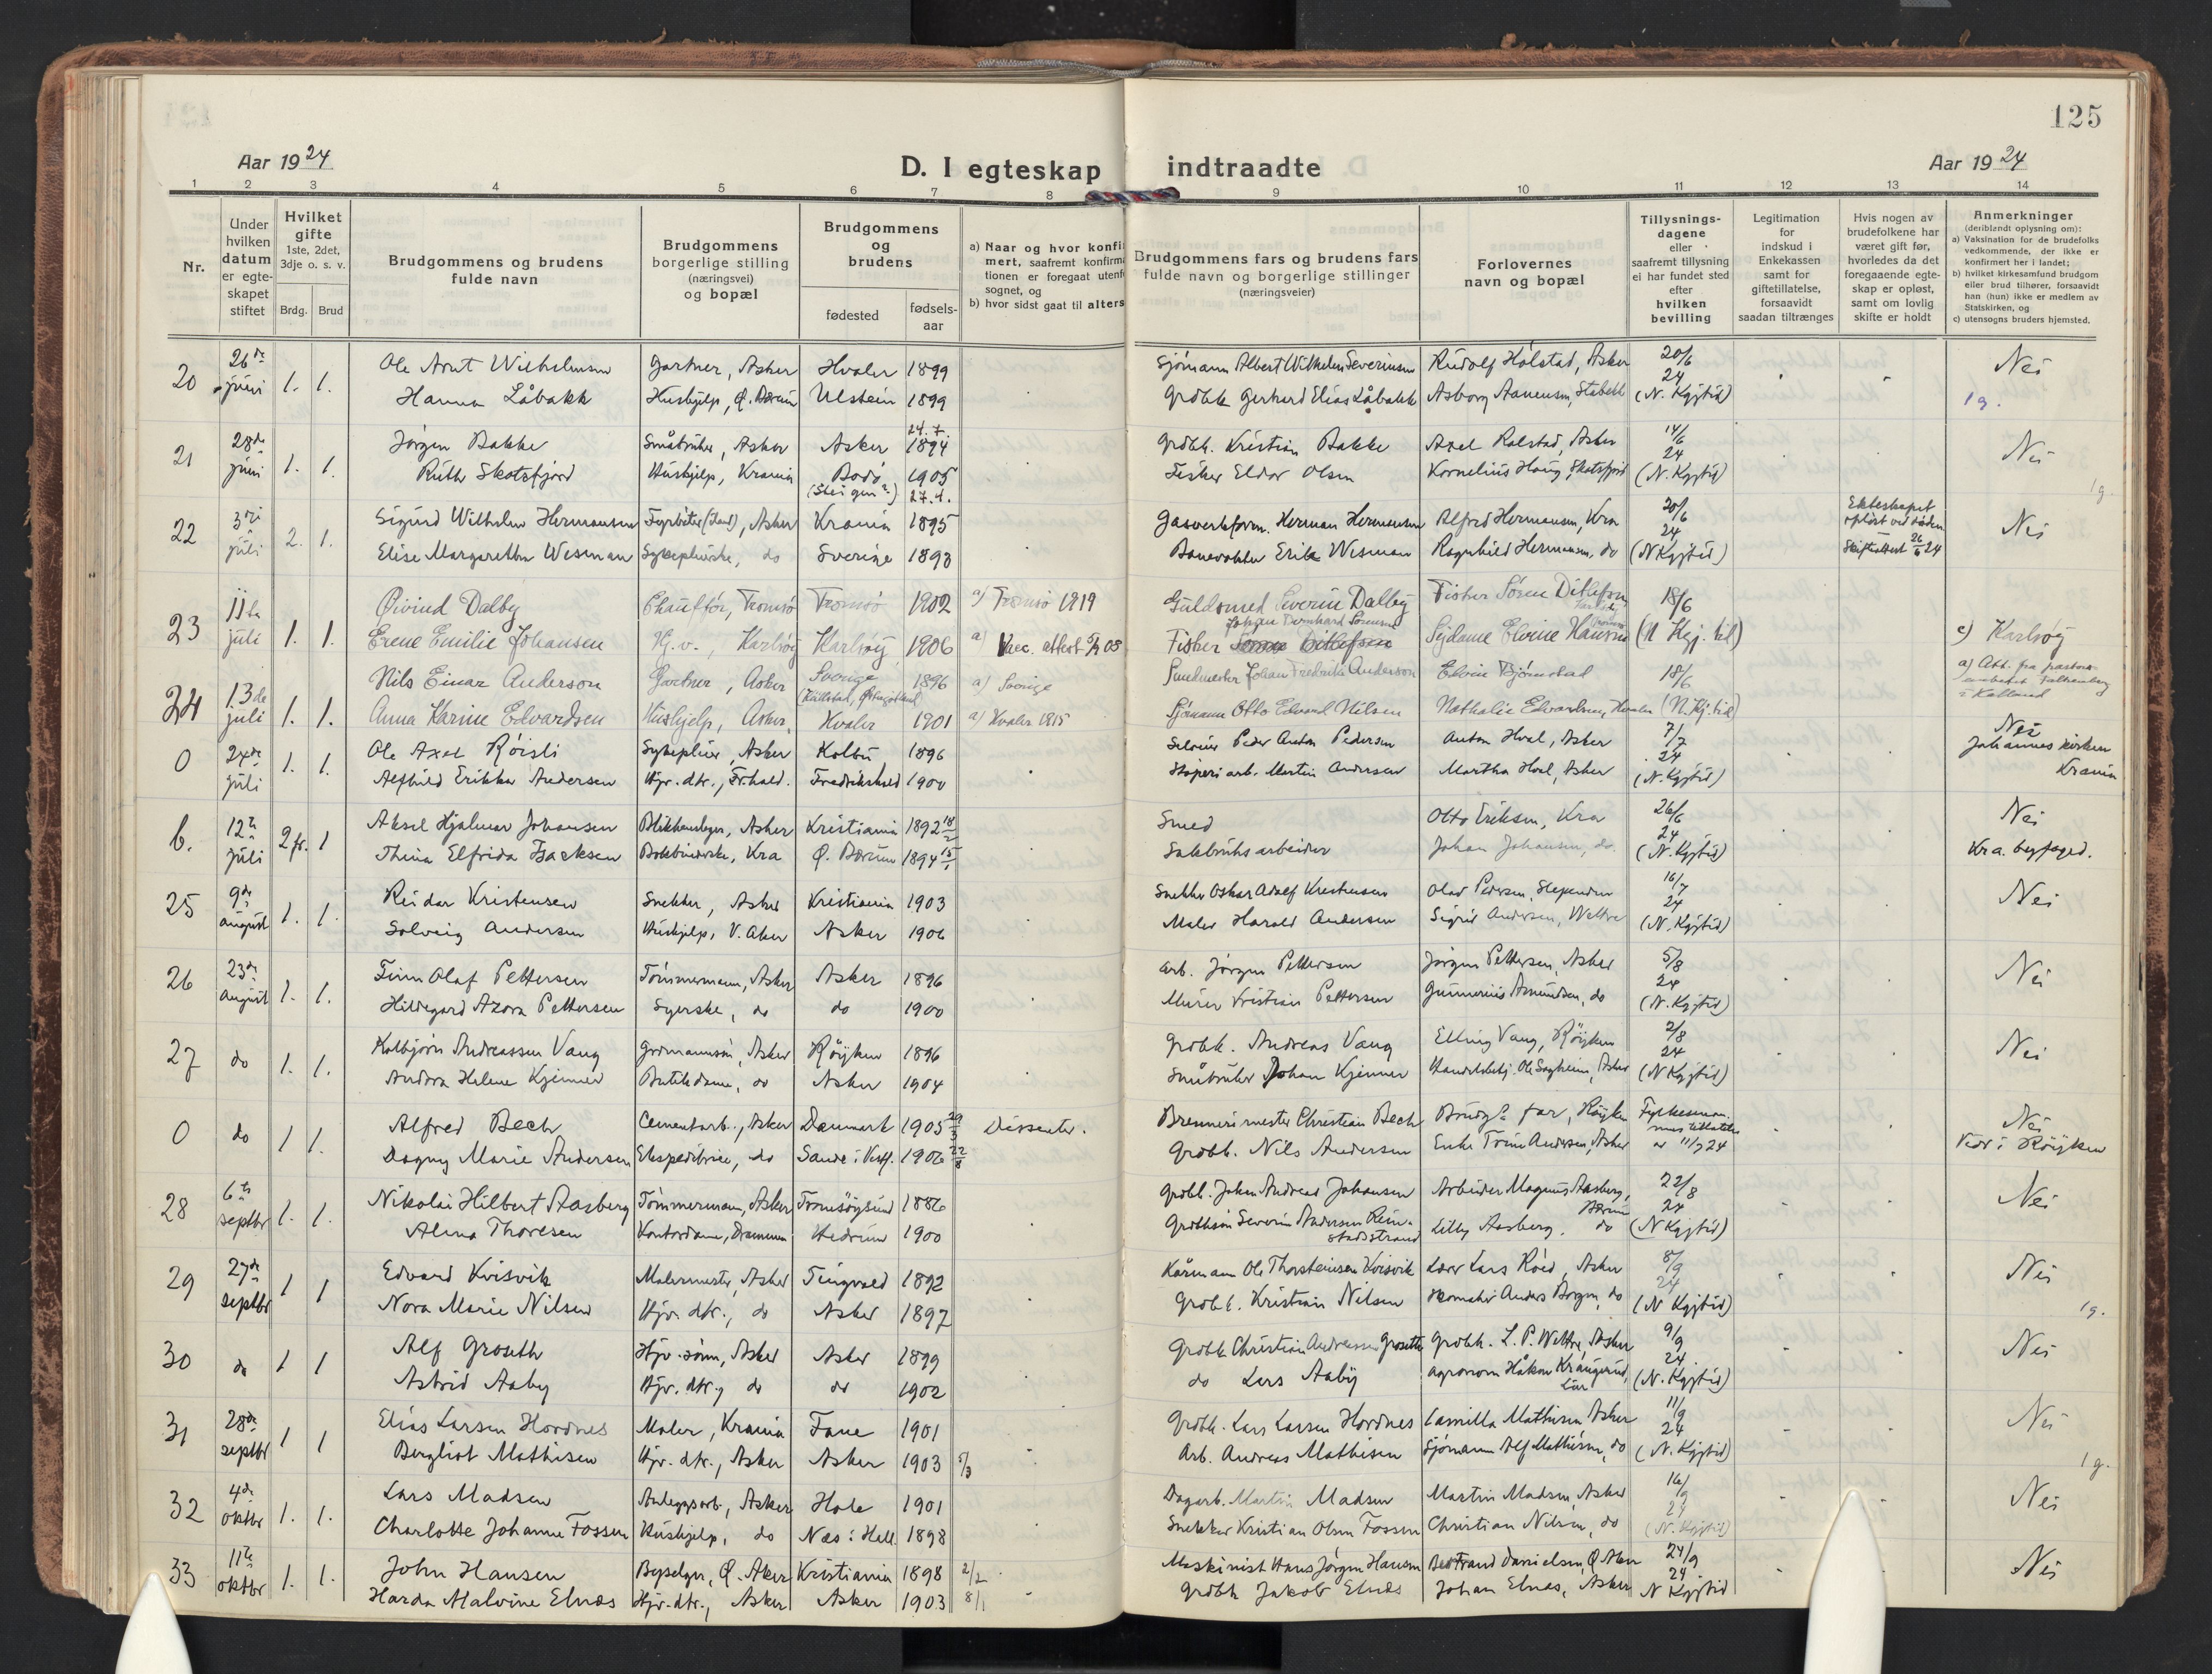 125
Aar 1924
D. I egteskap indtraadte
Aar 1924
1 2 3 4 5 6 7 8 9 10 11 12 13 14
Nr.
Under hvilken datum er egteskapet stiftet
Hvilket gifte 1ste, 2det, 3dje o. s. v.
Brdg. Brud
Brudgommens og brudens fulde navn
Brudgommens borgerlige stilling (næringsvei) og bopæl
Brudgommens og brudens
fødested fødselsaar
a) Naar og hvor konfi
mert, saafremt konfirma
tionen er foregaat utenf
sognet, og
b) hvor sidst gaat til alters
Brudgommens fars og brudens fars fulde navn og borgerlige stillinger (næringsveier)
Forlovernes navn og bopæl
Tillysningsdagene eller saafremt tillysning ei har fundet sted efter hvilken bevilling
Legitimation for indskud i Enkekassen samt for giftetillatelse, forsaavidt saadan tiltrænges
Hvis nogen av brudefolkene har været gift før, hvorledes da det foregaaende egteskap er opløst, samt om lovlig skifte er holdt
Anmerkninger (deriblandt oplysning om):
a) Vaksination for de brudefolks vedkommende, der ikke er konfirmert her i landet;
b) hvilket kirkesamfund brudgom eller brud tilhører, forsaavidt han (hun) ikke er medlem av Statskirken, og
c) utensogns bruders hjemsted.
20 26de juni 1. 1. Ole Arnt Wilhelmsen Gartner, Asker Hvaler 1899 Sjømann Albert Wilhelm Severinsen Rudolf Holstad, Asker 20/6 24 Nei
Hanna Låbakk Hushjelp, Ø. Bærum Ulstein 1899 Grdbk. Gerhard Elias Låbakk Asborg Aanensen, Stabekk (N. Kgjtid) 1g.
21 28de juni 1. 1. Jørgen Bakke Småbruker, Asker Asker 24.7. 1894 Grdbk. Kristian Bakke Axel Rolstad, Asker 14/6 24 Nei
Ruth Skotsfjord Hushjelp, Krania Bodø (Steigen?) 1905 27.4. Fisker Eldor Olsen Kornelius Haug, Skotsfjord (N. Kgjtid) 1g.
22 3dje juli 2. 1. Sigurd Wilhelm Hermansen Fyrbøter (Land), Asker Krania 1895 Gasverksform. Herman Hermansen Alfred Hermansen, Kra 20/6 24 Ekteskapet opløst ved døden Nei
Elise Margaretha Wesman Sykepleierske, do Sverige 1893 Banevokter Erik Wesman Ragnhild Hermansen, do (N Kgjtid) Skifteattest 26/6 24
23 11te juli 1. 1. Øivind Dalby Chauffør, Tromsø Tromsø 1902 a) Tromsø 1919 Guldsmed Severin Dalby Fisker Søren Ditlefsen 18/6
Erene Emilie Johansen Hj. v., Karlsøy Karlsøy 1906 a) Vacc. attest Fisker Johan Bernhard Sørensen Sydame Elvine Hansen (N Kgj. tid) c) Karlsøy
24 13de juli 1. 1. Nils Einar Anderson Gartner, Asker Sverige 1896 a) Sverige Smedmester Johan Fredrik Anderson Elvin Bjørnstad 18/6 a) Att. fra pastors-
Anna Karine Edvardsen Hushjelp, Asker Hvaler 1901 a) Hvaler 1915 Sjømann Otto Edvard Nilsen Nathalie Edvardsen, Hvaler (N. Kj. tid)
0 24de juli 1. 1. Ole Axel Røisli Sykepleier, Asker Kolbu 1896 Peder Anton Pedersen Anton Hval, Asker 7/7 24 Nei
Alfhild Erikka Andersen Hjv. dtr., Fr.hald. Fredrikshald 1900 Støperiarb. Martin Andersen Martha Hval, Asker (N. Kgjtid) Johannes kirken Krania
b. 12te juli 2 fr. 1 Aksel Hjalmar Johansen Blikkenslager, Asker Kristiania 1892 18/2 Smed Otto Eriksen, Kra 26/6 24 Nei
Thina Elfrida Isacksen Bokbinderske, Kra Ø. Bærum 1894 15/1 Sakbruksarbeider Johan Johansen, do (N. Kgjtid) Kra. byfoged.
25 9de august 1. 1. Reidar Kristensen Snekker, Asker Kristiania 1903 Snekker Oskar Adolf Kristensen Olav Pedersen, Slependen 16/7 24 Nei
Solveig Andersen Hushjelp, V. Aker Asker 1906 Maler Harald Andersen Sigrid Andersen, Wettre (N. Kgjtid)
26 23de august 1. 1. Finn Olaf Pettersen Tømmermann, Asker Asker 1896 Arb. Jørgen Pettersen Jørgen Pettersen, Asker 5/8 24 Nei
Hildegard Azora Pettersen Syerske, do do 1900 Murer Kristian Pettersen Gunnerius Amundsen, do (N. Kgjtid)
27 do 1. 1. Kolbjørn Andreassen Vang Grdmannsøn, Asker Røyken 1896 Grdbk. Andreas Vang Elling Vang, Røyken 2/8 24 Nei
Andora Helene Kjenner Butikdame, do Asker 1904 Småbruker Johan Kjenner Handelsbetj. Ole Sagheim, Asker (N Kgjtid)
0 do 1 1. Alfred Bech Cementarb., Asker Danmark 1905 29/3 Dissenter. Brennerimester Christian Bech Brudg. far, Røyken Fylkesmannens tillatelse Nei
Dagny Marie Andersen Ekspeditrice, do Sande i Vestf. 1906 22/8 Grdbk. Nils Andersen Enke Trine Andersen, Asker av 11/7 24 Viet i Røyken
28 6te septbr 1. 1. Nikolai Hilbert Aasberg Tømmermann, Asker Tromsøysund 1886 Grdbk. Johan Andreas Johansen Arbeider Magnus Aasberg, Bærum 22/8 24 Nei
Alma Thoresen Kontordame, Drammen Hedrum 1900 Grdbksøn Severin Andersen Reinstadstrand Lilly Aasberg. do (N Kgjtid)
29 27de septbr 1 1 Edvard Kvisvik Malermester, Asker Tingvold 1892 Kårmann Ole Thorsteinsen Kvisvik Lærer Lars Røed, Asker 8/9 24 Nei
Nora Marie Nilsen Hjv. dtr., do Asker 1897 Grdbk. Kristian Nilsen Skomaker Anders Borgen, do (N Kgjtid) 1g.
30 do 1 1 Alf Groseth Hjv. sønn, Asker Asker 1899 Grdbk. Christian Andreassen Groseth Grdbk. L. P. Wettre, Asker 9/9 24. Nei
Astrid Aaby Hjv. dtr., do do 1902 do Lars Aaby Agronom Håkon Krangerud, Lier (N. Kgjtid)
31 28de septbr 1 1 Elias Larsen Hordnes Maler, Krania Fane 1901 Grdbk. Lars Larsen Hordnes Camilla Mathisen Asker 11/9 24 Nei
Bergliot Mathisen Hjv. dtr., Asker Asker 1903 5/3 Arb. Andreas Mathisen Sjømann Alf Mathisen, do (N. Kgjtid) 1g.
32 4de oktbr 1. 1. Lars Madsen Anleggsarb., Asker Hole 1901 Dagarb. Martin Madsen Martin Madsen, Asker 16/9 24 Nei
Charlotte Johanne Fossen Hushjelp, do Næs i Hall. 1898 Snekker Kristian Olsen Fossen Christian Nilsen, do (N. Kgjtid)
33 11te oktbr 1. 1. John Hansen Byselger, Ø. Aker Kristiania 1898 2/2 Maskinist Hans Jørgen Hansen Danielsen, Ø Aker 24/9 24. Nei
Harda Malvine Elnæs Hjv. dtr., Asker Asker 1903 8/1 Grdbk Jakob Elnæs Johan Elnæs, Asker N Kgjtid